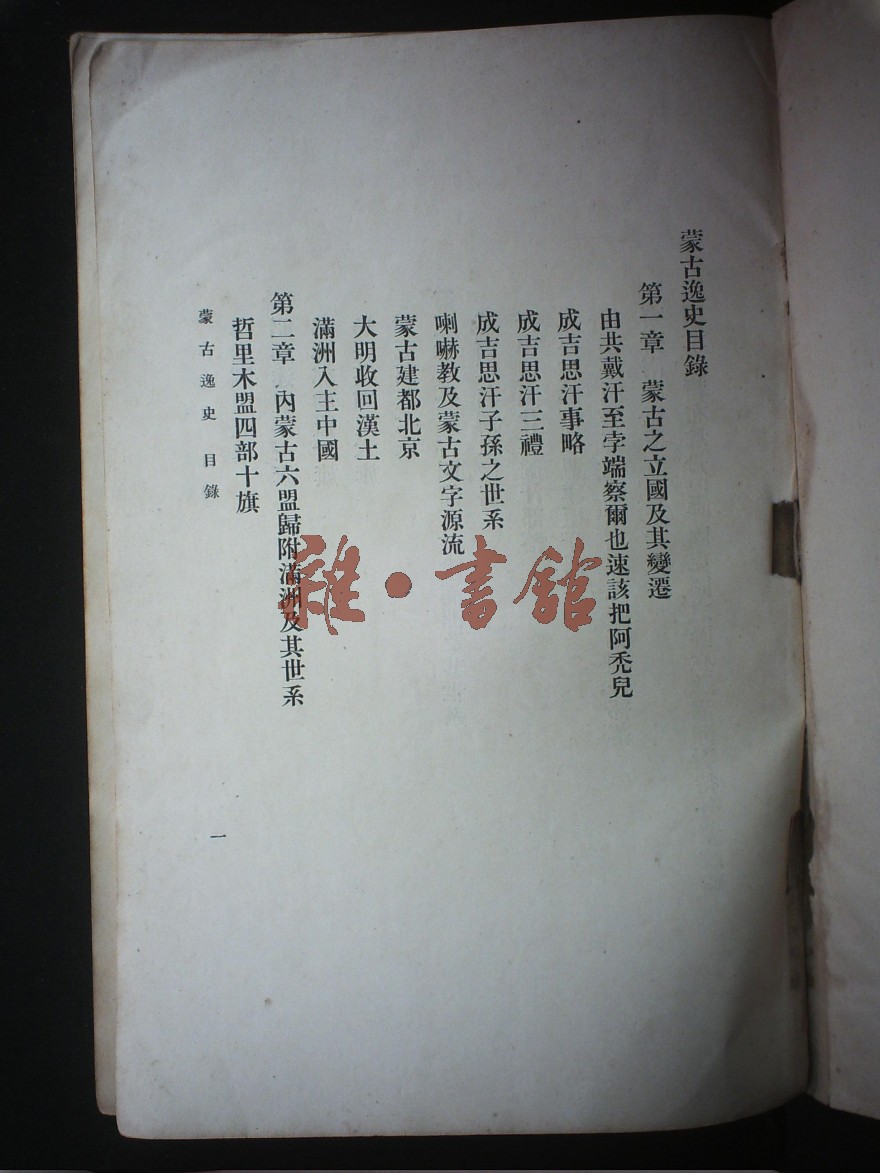 蒙古逸史目錄
第一章 蒙古之立國及其變遷
由共戴汗至孛端察爾也速該把阿禿兒
成吉思汗事略
成吉思汗三禮
成吉思汗子孫之世系
喇嚇教及蒙古文字源流
蒙古建都北京
大明收回漢土
滿洲入主中國
第二章 內蒙古六盟歸附滿洲及其世系
哲里木盟四部十旗
蒙古逸史 目錄
一
雜·書舘